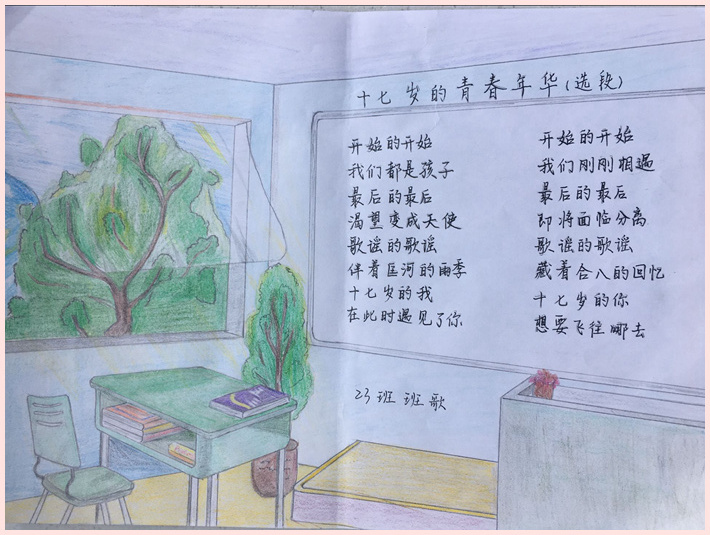 十七岁的青春年华(选段)
开始的开始
我们都是孩子
最后的最后
渴望变成天使
歌谣的歌谣
伴着匡河的雨季
十七岁的我
在此时遇见了你
开始的开始
我们刚刚相遇
最后的最后
即将面临分离
歌谣的歌谣
藏着合八的回忆
十七岁的你
想要飞往哪去
23班班歌